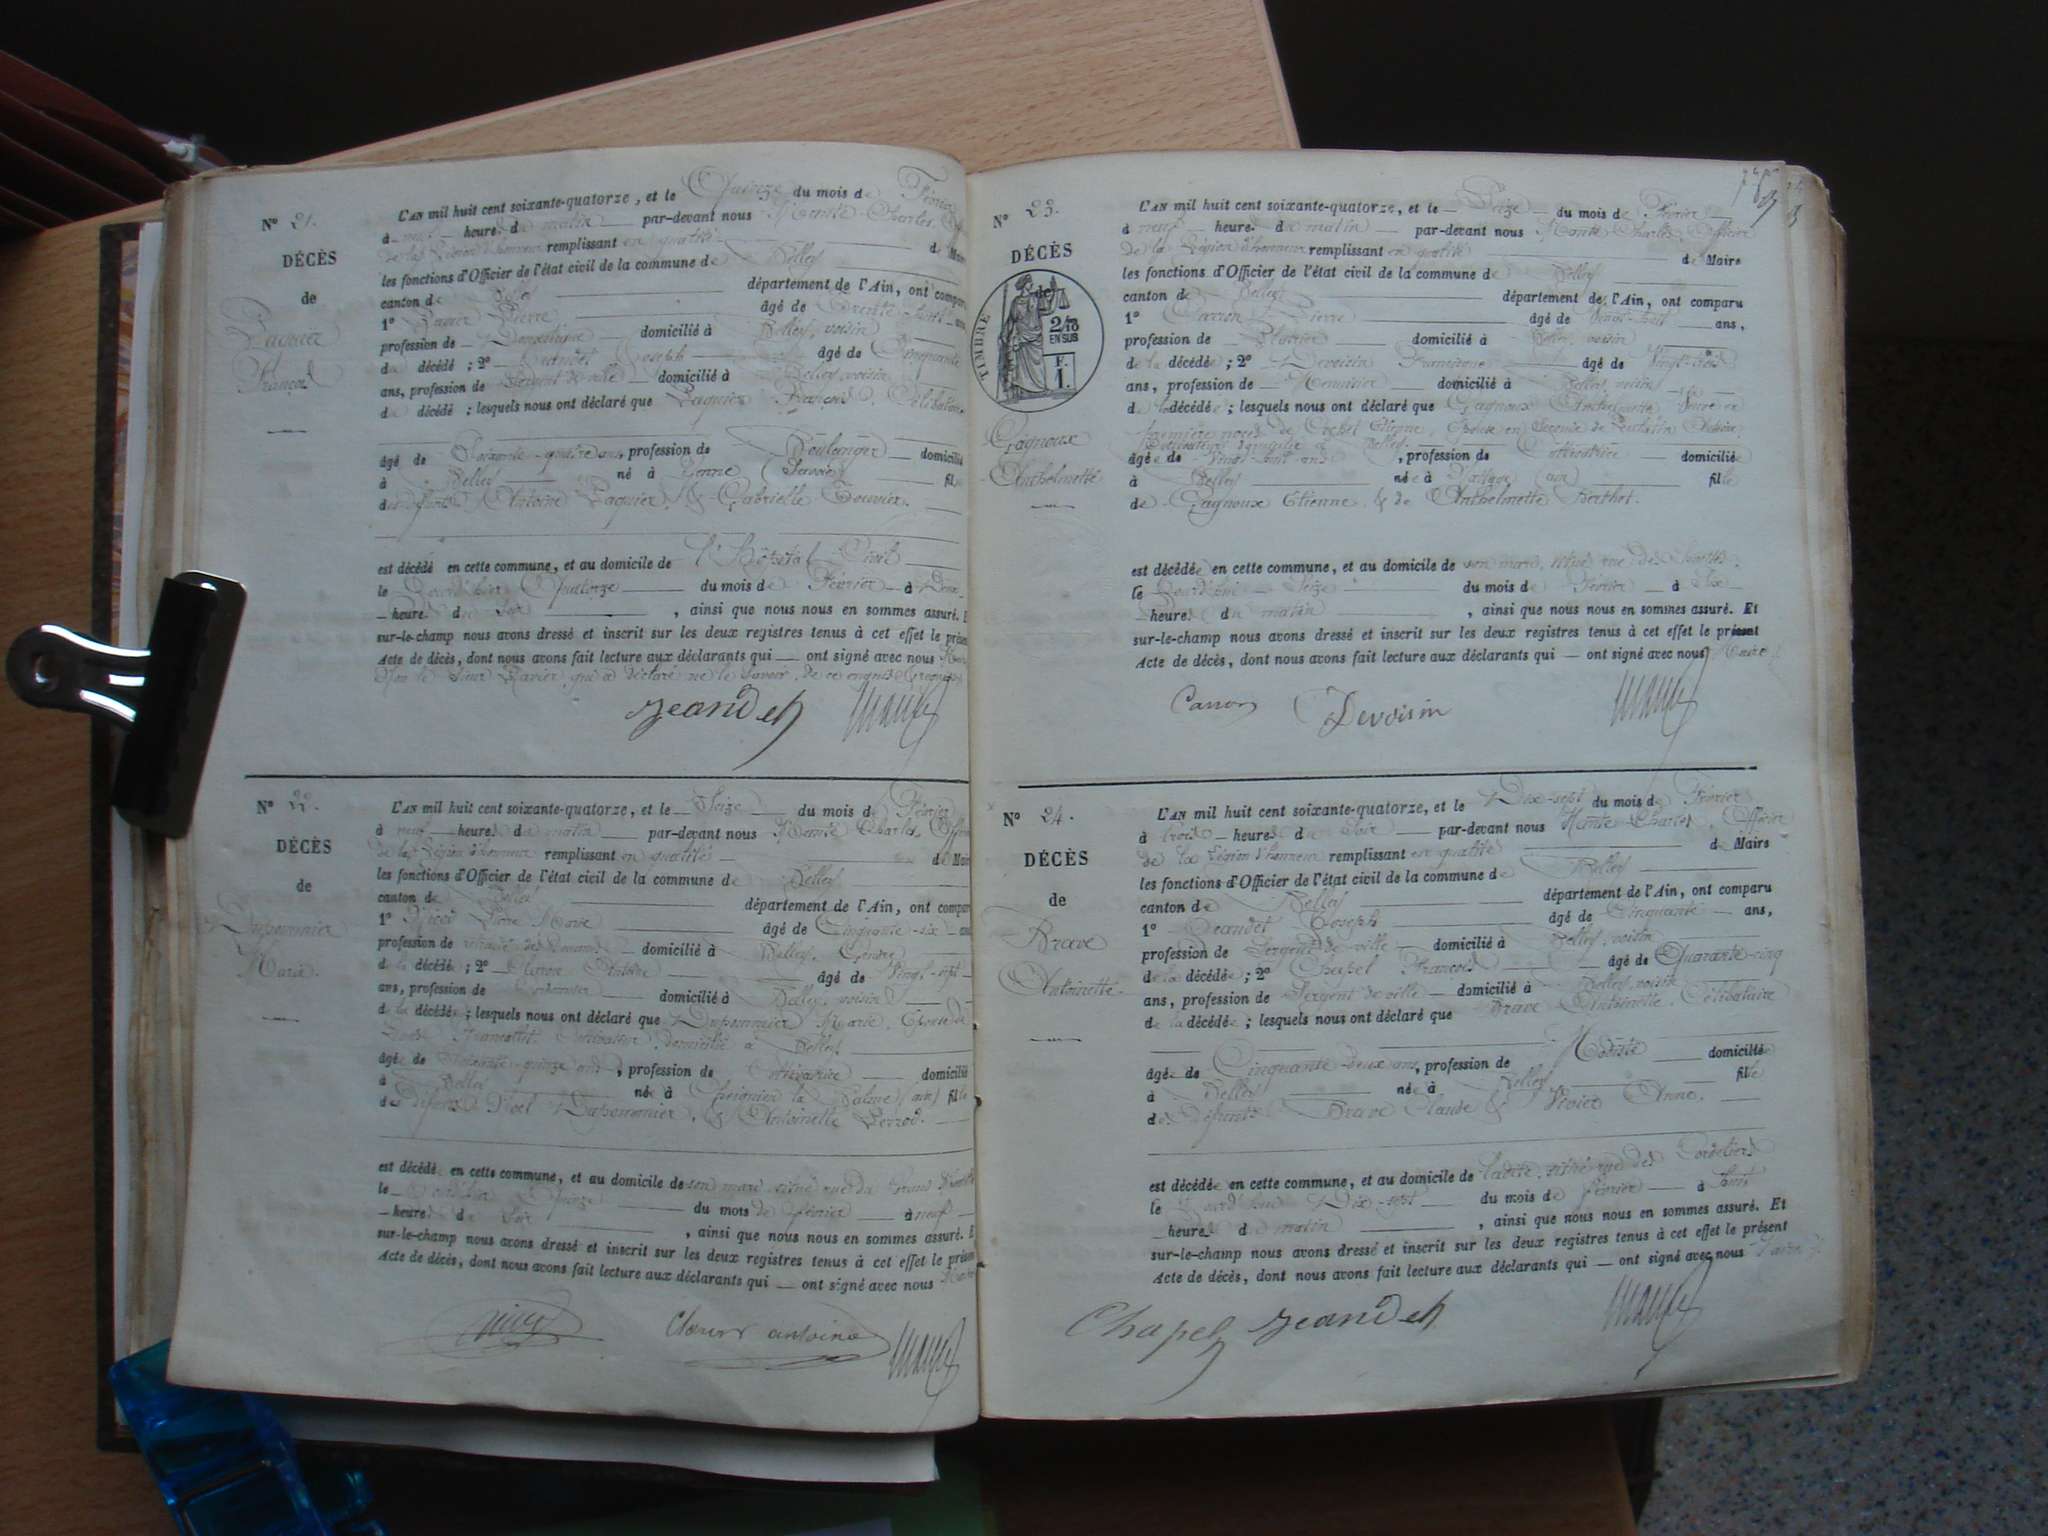 N° 21.
DÉCÈS
de
François
L'AN mil huit cent soixante-quatorze, et le Quinze du mois de Février
à neuf heures du matin par-devant nous Charles
de la Légion d'honneur remplissant en qualité de Maire
les fonctions d'Officier de l'état civil de la commune de Belley
canton de Belley département de l'Ain, ont comparu
1° Pierre âgé de Trente-huit ans
profession de Domestique domicilié à Belley, voisin
du décédé ; 2° Jeandet Joseph âgé de Cinquante
ans, profession de Sergent de ville domicilié à Belley, voisin
du décédé ; lesquels nous ont déclaré que Paquier François, Célibataire
âgé de Soixante-quatre ans, profession de Boulanger domicilié
à Belley né à Yenne (Savoie) fils
des défunts Antoine Paquier, & Gabrielle
est décédé en cette commune, et au domicile de l'Hôpital Civil
le Quatorze du mois de Février à Deux
heures du Soir , ainsi que nous nous en sommes assuré. Et
sur-le-champ nous avons dressé et inscrit sur les deux registres tenus à cet effet le présent
Acte de décès, dont nous avons fait lecture aux déclarants qui — ont signé avec nous
Non le Sieur qui a déclaré ne le savoir, de ce enquis & requis
Jeandet
N° 22.
DÉCÈS
de
Duponnier
Marie.
L'AN mil huit cent soixante-quatorze, et le Seize du mois de Février
à neuf heures du matin par-devant nous Charles, Officier
de la Légion d'honneur remplissant en qualité de Maire
les fonctions d'Officier de l'état civil de la commune de Belley
canton de Belley département de l'Ain, ont comparu
1° Pierre Marie âgé de Cinquante-six ans
profession de domicilié à Belley, Gendre
de la décédée ; 2° Antoine âgé de Vingt-sept
ans, profession de domicilié à Belley, voisin
de la décédée ; lesquels nous ont déclaré que Duponnier Marie, Epouse de
domicilié à Belley
âgée de Soixante-quinze ans, profession de Cultivatrice domiciliée
à Belley née à Cheignieu la Balme (ain) fille
des défunts Noel Duponnier, & Antoinette
est décédée en cette commune, et au domicile de son mari, situé rue du
le Quinze du mois de Février à neuf
heures du Soir , ainsi que nous nous en sommes assuré. Et
sur-le-champ nous avons dressé et inscrit sur les deux registres tenus à cet effet le présent
Acte de décès, dont nous avons fait lecture aux déclarants qui — ont signé avec nous
antoine
N° 23.
DÉCÈS
de
TIMBRE
2/10
EN SUS
F.
1.
Gagnoux
Anthelmette
L'AN mil huit cent soixante-quatorze, et le Seize du mois de Février
à neuf heures du matin par-devant nous Charles, Officier
de la Légion d'honneur remplissant en qualité de Maire
les fonctions d'Officier de l'état civil de la commune de Belley
canton de Belley département de l'Ain, ont comparu
1° Pierre âgé de Vingt-huit ans,
profession de Plâtrier domicilié à Belley, voisin
de la décédée ; 2° Devoisin Françisque âgé de Vingt-trois
ans, profession de Menuisier domicilié à Belley, voisin
de la décédée ; lesquels nous ont déclaré que Gagnoux Anthelmette Veuve en
première noces de Cochet Etienne, Epouse en Seconde de
domicilié à Belley
âgée de Vingt-huit ans , profession de Cultivatrice domiciliée
à Belley née à (ain) fille
de Gagnoux Etienne, & de Anthelmette Berthet.
est décédée en cette commune, et au domicile de son mari, situé rue des
le Jourd'hui Seize du mois de Février à Six
heures du matin , ainsi que nous nous en sommes assuré. Et
sur-le-champ nous avons dressé et inscrit sur les deux registres tenus à cet effet le présent
Acte de décès, dont nous avons fait lecture aux déclarants qui — ont signé avec nous Maire
Devoisin
N° 24.
DÉCÈS
de
Brave
Antoinette
L'AN mil huit cent soixante-quatorze, et le Dix-sept du mois de Février
à trois heures du Soir par-devant nous Charles, Officier
de la Légion d'honneur remplissant en qualité de Maire
les fonctions d'Officier de l'état civil de la commune de Belley
canton de Belley département de l'Ain, ont comparu
1° Jeandet Joseph âgé de Cinquante ans,
profession de Sergent de ville domicilié à Belley, voisin
de la décédée ; 2° Chapel François âgé de Quarante-cinq
ans, profession de Sergent de ville domicilié à Belley, voisin
de la décédée ; lesquels nous ont déclaré que Brave Antoinette, Célibataire
âgée de Cinquante-deux ans, profession de Modiste domiciliée
à Belley née à Belley fille
des défunts Brave Claude & Vivier Anne.
est décédée en cette commune, et au domicile de ladite, situé rue des Cordeliers
le Jourd'hui Dix-sept du mois de Février à Huit
heures du matin , ainsi que nous nous en sommes assuré. Et
sur-le-champ nous avons dressé et inscrit sur les deux registres tenus à cet effet le présent
Acte de décès, dont nous avons fait lecture aux déclarants qui — ont signé avec nous
Chapel Jeandet